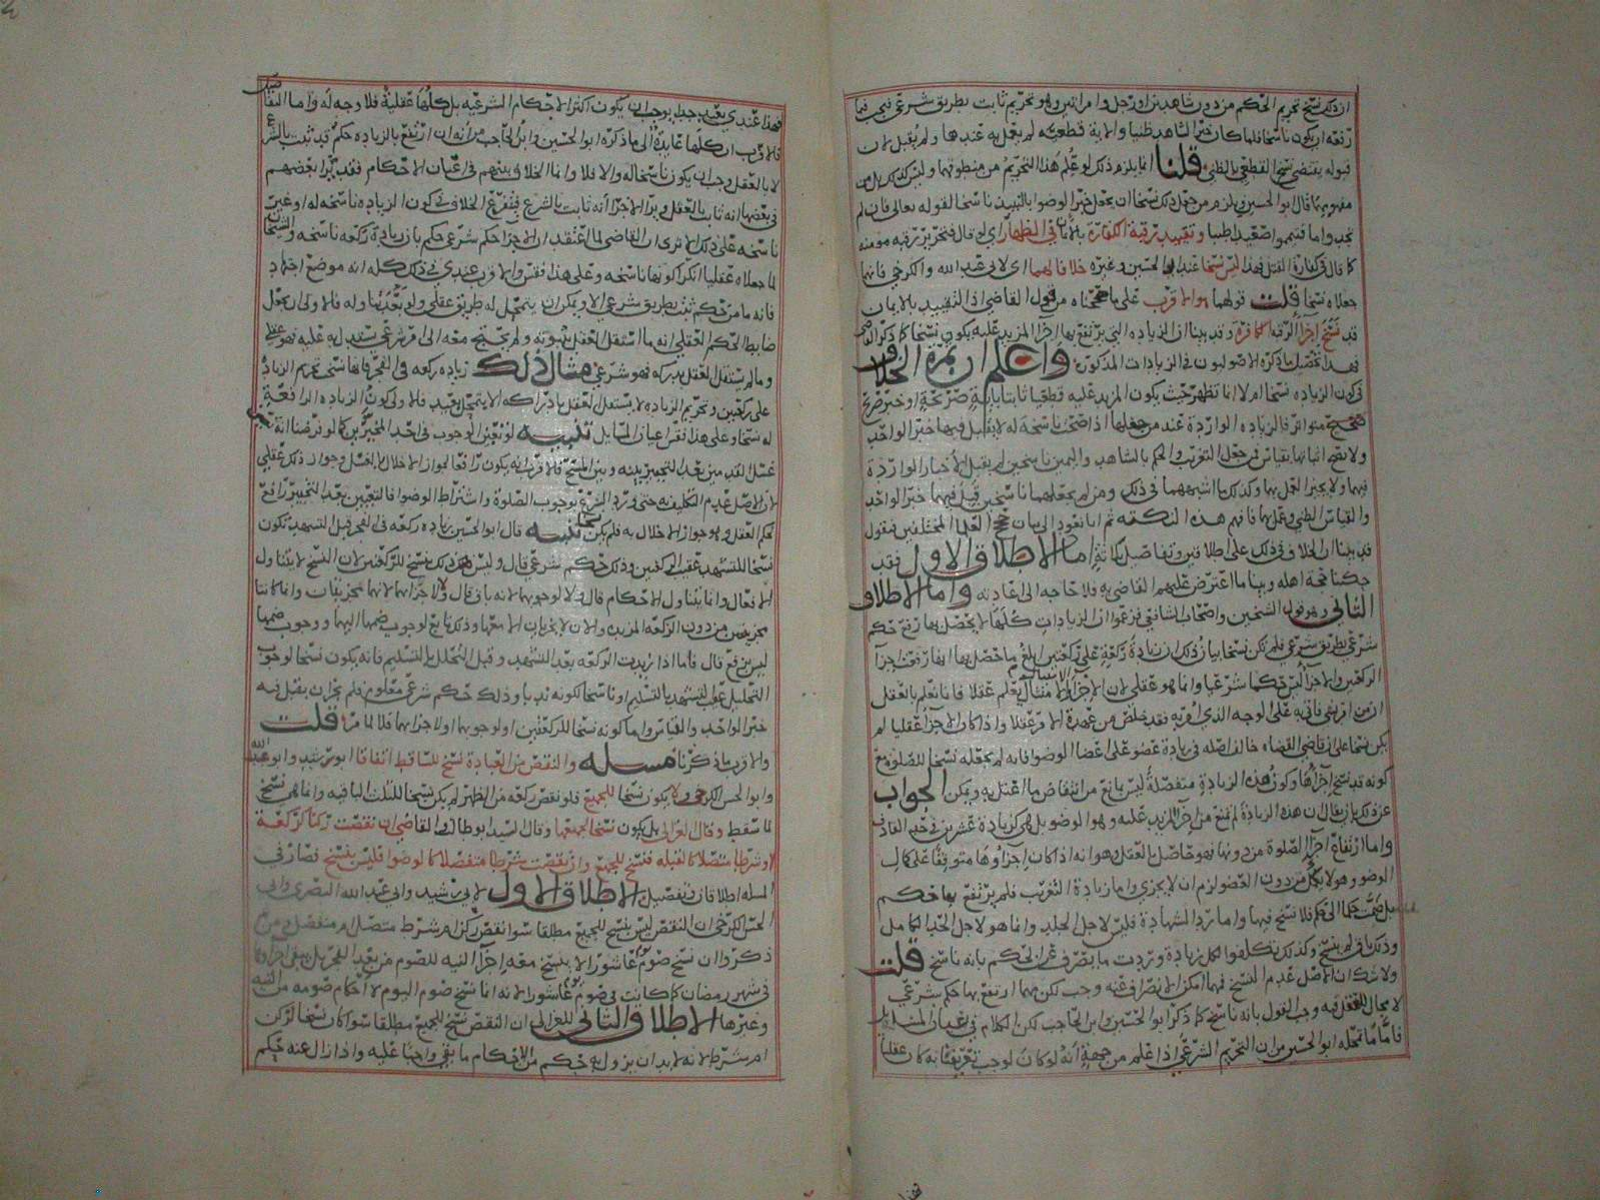 ان ذلك نسخ تحريم الحكم من دون شاهدين او رجل وامراتين وهو تحريم ثابت بطريق شرعي فيجب فيما
رفعه ان يكون ناسخا فلما كان خبر الشاهد ظنيا والاية قطعية لم يعمل به عندها ولم يقبل لان
قبوله يقتضي نسخ القطعي بالظني قلنا انما يلزم ذلك لو علم هذا التحريم من منطوقها وليس كذلك بل من
مفهومها قال ابو الحسين ويلزم من جعل ذلك نسخا ان يجعل خبر الوضوا بالنبيذ ناسخا لقوله تعالى فان لم
تجدوا ما فتيمموا صعيدا طيبا وتقييد رقبة الكفارة بالايمان في الظهار اي لو قال فتحرير رقبه مومنه
كما قال في كفارة القتل فهذا ليس نسخا عند ابي الحسين وغيره خلافا لهما اي لابي عبد الله والكرخي فانهما
جعلاه نسخا قلت قولهما هو الاقرب على ما صححناه من قول القاضي اذ التقييد بالايمان
قد نسخ اجزآ الرقبه الكافرة وقد بينا ان الزياده التي يرتفع بها اجزآ المزيد عليه يكون نسخا كما ذكر القاضي
فهذا تفصيل ما ذكره الاصوليون في الزيادات المذكورة واعلم ان ثمرة الخلاف
في كون الزياده نسخا ام لا انما تظهر حيث يكون المزيد عليه قطعيا ثابتا باية صريحة او خبر صريح
صحيح متواتر فالزياده الواردة عند من جعلها ناسخة له لا يقبل فيها خبر الواحد
ولا يصح اثباتها بقياس فمن جعل التغريب والحكم بالشاهد واليمين ناسخين لم يقبل الاخبار الواردة
فيها ولا يجيز العمل بها وكذلك ما اشبههما في ذلك ومن لم يجعلهما ناسخين قبل فيهما خبر الواحد
والقياس الظني وعمل بها فافهم هذه النكته ثم انا نعود الى بيان حجج العلما المختلفين فنقول
قد بينا ان الخلاف في ذلك على اطلاقين وتفاصيل ثلاثة اما الاطلاق الاول فقد
حكينا حجة اهله وبينا ما اعترض عليهم القاضي به فلا حاجه الى اعادته واما الاطلاق
الثاني وهو قول الشيخين واصحاب الشافعي فزعموا ان الزيادات كلها لا يحصل بها رفع حكم
شرعي بطريق شرعي فلم تكن نسخا بيان ذلك ان زيادة ركعة على ركعتين ابلغ ما حصل بها انها رفعت اجزآ
الركعتين والاجزآ ليس حكما شرعيا وانما هو عقلي لان الاجزآ الامتثال يعلم عقلا فانا نعلم بالعقل
ان من امر بشي فاتى به على الوجه الذي امر به فقد خلص من عهدة الامر عقلا واذا كان الاجزآ عقليا لم
يكن نسخا على ان قاضي القضاه خالف اصله في زيادة عضو على اعضا الوضوا فانه لم يجعله نسخا للصلوة مع
كونه قد نسخ اجزآها وكون هذه الزيادة منفصلة ليس بمانع من انتقاض ما اعتل به ويمكن الجواب
عن ذلك بان يقال ان هذه الزيادة لم تمنع من اجزآ المزيد عليه وهو الوضو بل هي كزيادة عشرين في حد القاذف
واما ارتفاع اجزآ الصلوة من دونها فهو حاصل بالعقل وهو انه اذا كان اجزآوها متوقفا على كمال
الوضو وهو لا يكمل من دون العضو لزم ان لا يجزي واما زيادة التغريب فلم يرتفع بها حكم
بل ضمت حكما الى حكم فلا نسخ فيها واما رد الشهادة فليس لاجل الجلد وانما هو لاجل الحد الكامل
وذلك باق لم ينسخ وكذلك تكلفوا لكل زيادة وردت ما يصرف عن الحكم بانه ناسخ قلت
ولا شك ان الاصل عدم النسخ فمهما امكن الانصراف عنه وجب لكن مهما ارتفع بها حكم شرعي
لا مجال للعقل فيه وجب القول بانه ناسخ كما ذكر ابو الحسين وابن الحاجب لكن الكلام في اعيان المسايل
فاما ما تمحله ابو الحسين من ان التحريم الشرعي اذا علم من جهة انه لو كان لوجب تعريفنا به كان عقليا
فهذا عندي بعيد جدا يوجب ان يكون اكثر الاحكام الشرعيه بل كلها عقلية فلا وجه له واما التفاصيل
فالاقرب ان كلها عايدة الى ما ذكره ابو الحسين وابن الحاجب من انه ان ارتفع بالزياده حكم قد ثبت بالشرع
لا بالعقل وجب ان يكون ناسخا له والا فلا وانما الخلاف بينهم في اعيان الاحكام فقد يرا بعضهم
في بعضها انه ثابت بالعقل ويرا الاخر انه ثابت بالشرع فيتفرع الخلاف في كون الزياده ناسخه له او غير
ناسخه على ذلك الا ترى ان القاضي لما اعتقد ان الاجزآ حكم شرعي حكم بان زيادة ركعه ناسخه والشيخان
لما جعلاه عقليا انكرا كونها ناسخه وعلى هذا فقس والاقرب عندي في ذلك كله انه موضع اجتهاد
فانه ما من حكم ثبت بطريق شرعي الا ويمكن ان يتمحل له طريق عقلي ولو بعد تناوله فالاولى ان يجعل
ضابط الحكم العقلي انه ما استقل العقل بثبوته ولم يحتج معه الى امر شرعي يستدل به عليه فهو عقلي
وما لم يستقل العقل بدركه فهو شرعي مثال ذلك زياده ركعه في الفجر فانها نسخ تحريم الزياده
على ركعتين وتحريم الزياده لا يستقل العقل بادراكه الا بتمحل بعيد فالاولى كون الزياده الرافعة
له نسخا وعلى هذا فقس اعيان المسايل تنبيه لو تعين الوجوب في احد المخيرين كما لو فرضنا انه تعين
غسل القدمين بعد التخيير بينه وبين المسح فالاقرب انه يكون رافعا لجواز الاخلال بالغسل وجواز ذلك عقلي
لان الاصل عدم التكليف حتى ورد الشرع بوجوب الصلوة واشتراط الوضوا فالتعيين بعد التخيير رافع
لحكم العقل وهو جواز الاخلال به فلم يكن نسخا تنبيه قال ابو الحسين زياده ركعه في الفجر قبل التشهد تكون
نسخا للتشهد عقيب الركعتين وذلك حكم شرعي قال وليس ذلك بنسخ للركعتين لان النسخ لا يتناول
الافعال وانما يتناول الاحكام قال ولا لوجوبهما لانه باق قال ولا لاجزآيهما لانهما مجزيتان وانما كانتا
مجزيتين من دون الركعه المزيده والان لا يجزيان الا معها وذلك تابع لوجوب ضمها اليهما ووجوب ضمها
ليس برفع قال فاما اذا زيدت الركعه بعد التشهد وقبل التحلل بالتسليم فانه يكون نسخا لوجوب
التحليل عقيب التشهد بالتسليم او ناسخا لكونه ندبا وذلك حكم شرعي معلوم فلم يجز ان يقبل فيه
خبر الواحد والقياس واما كونه نسخا للركعتين او لوجوبهما او لاجزايهما فلا لما مر قلت
والاقرب ما ذكرنا مسله والنقص من العبادة نسخ للساقط اتفاقا ابو رشيد وابو عبد الله
وابو الحسن الكرخي ولا يكون نسخا للجميع فلو نقص ركعه من الظهر لم يكن نسخا للثلاث الباقيه وانما هو نسخ
لما سقط وقال الغزالي بل يكون نسخا لجميعها وقال السيد ابو طالب والقاضي ان نقصت ركنا كركعة
او شرطا متصلا كالقبله فنسخ للجميع وان نقصت شرطا منفصلا كالوضوا فليس بنسخ فصار في
المسله اطلاقان وتفصيل الاطلاق الاول لابي رشيد وابي عبد الله البصري وابي
الحسن الكرخي ان النقص ليس بنسخ للجميع مطلقا سوا نقص ركن ام شرط متصل ام منفصل
ذكروا ان نسخ صوم عاشورا لا ينسخ معه اجزآ النيه للصوم من بعد الفجر بل يبقى اجزآوها
في شهر رمضان كما كانت في صوم عاشورا لانه انما نسخ صوم اليوم لا احكام صومه من النيه
وغيرها الاطلاق الثاني للغزالي ان النقص نسخ للجميع مطلقا سوا كان نسخا لركن
ام شرط لانه لا بد ان يزول به حكم من الاحكام ما بقي واجبا عليه واذا زال عنه حكم